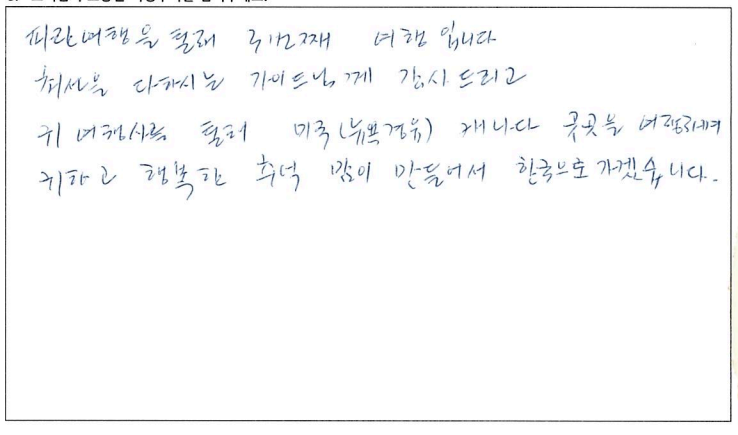 파란여행을 통해 두번째 여행입니다
최선을 다하시는 가이드님께 감사드리고
귀 여행사를 통해 미국(뉴욕경유) 캐나다 곳곳을 여행하며
귀하고 행복한 추억 많이 만들어서 한국으로 가겠습니다.